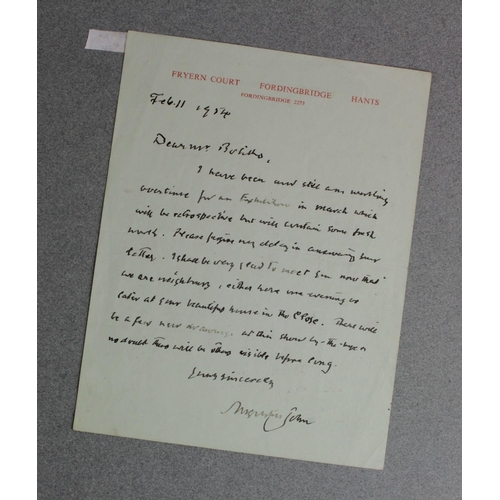 FRYERN COURT FORDINGBRIDGE HANTS
FORDINGBRIDGE 2273
Feb. 11 1954
Dear Mr Bolitho,
I have been and still am working
overtime for an Exhibition in March which
will be retrospective but will contain some fresh
work. Please forgive my delay in answering your
letter. I shall be very glad to meet you now that
we are neighbours, either here one evening or
later at your beautiful house in the Close. There will
be a few new drawings at this show by-the-bye &
no doubt two will be visible before long.
Yours sincerely
Augustus John